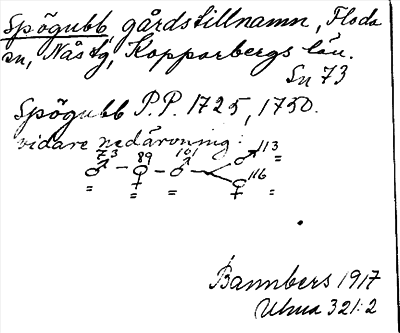 Spögubb gårdstillnamn, Floda
sn, Nås tg, Kopparbergs län.
Sn 73
Spögubb P.P. 1725, 1750.
vidare nedärvning:
73 89 101 ♂113
♂ – ♀ – ♂ < ♀116
Bannbers 1917
Ulma 321:2